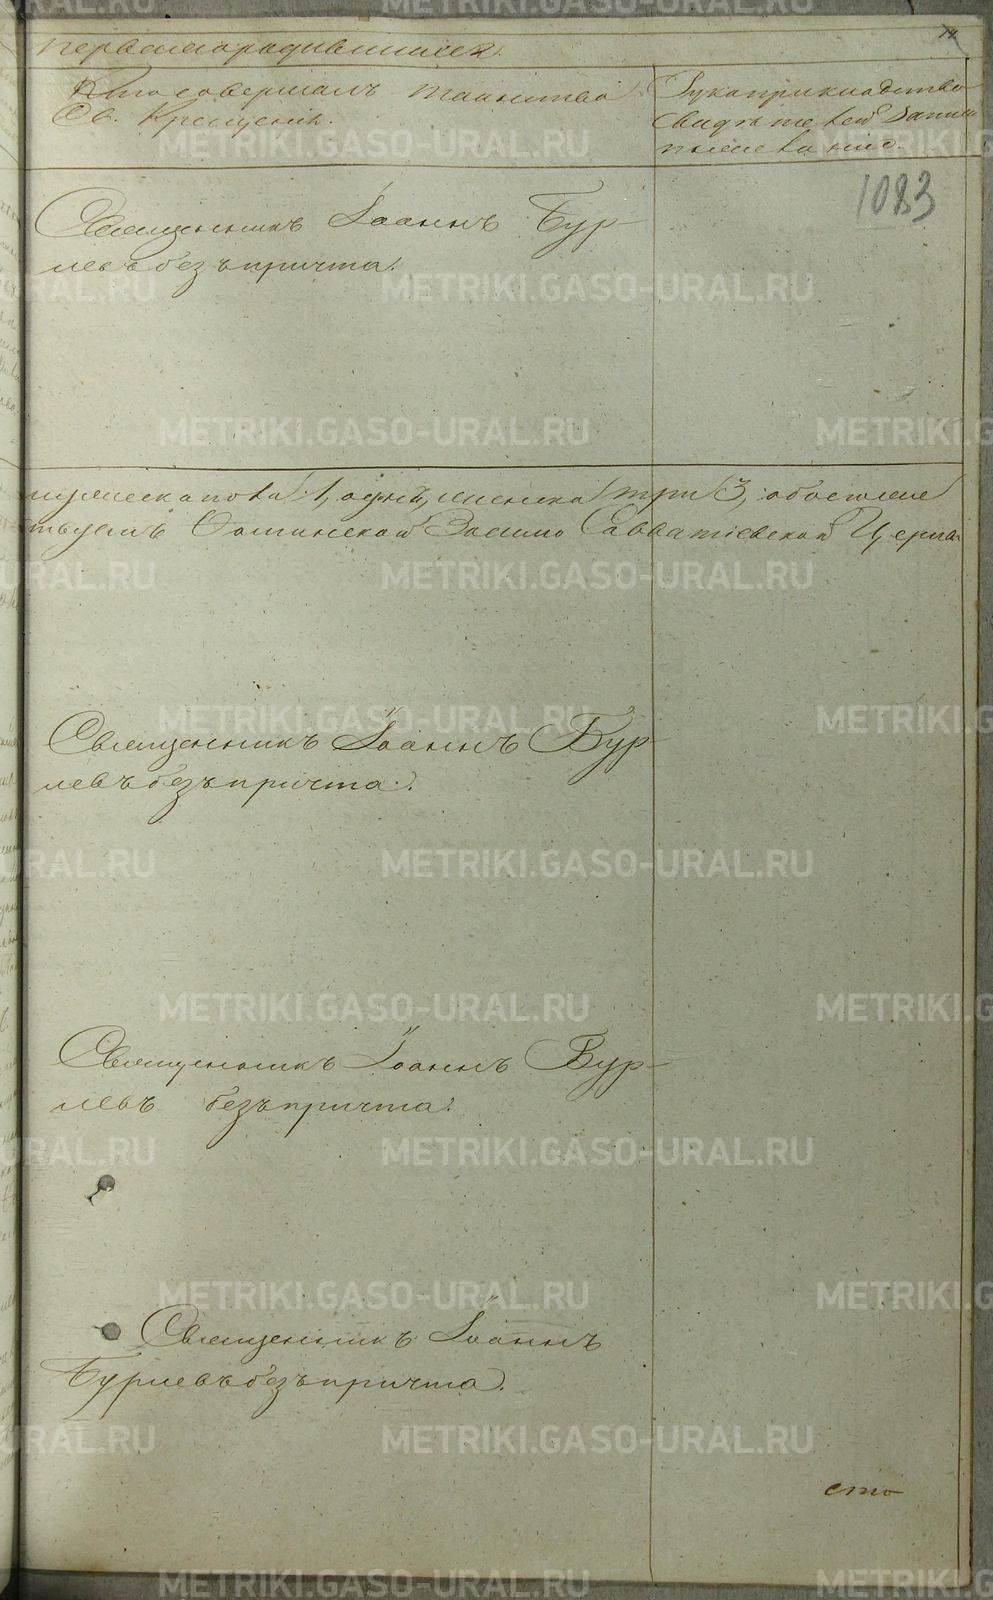 первая о родившихся
Кто совершалъ таинство
Св. Крещенія.
Рукоприкладство
свидѣтелей записи
по желанію.
1083
Священникъ Іоаннъ Бур-
левъ безъ причта.
мужеска пола 1, одинъ, женска три 3, обоего
Зосимо Савватіевской Церкв
Священникъ Іоаннъ Бур-
левъ безъ причта.
Священникъ Іоаннъ Бур-
левъ безъ причта.
Священникъ Іоаннъ
Бурлевъ безъ причта.
сто
METRIKI.GASO-URAL.RU